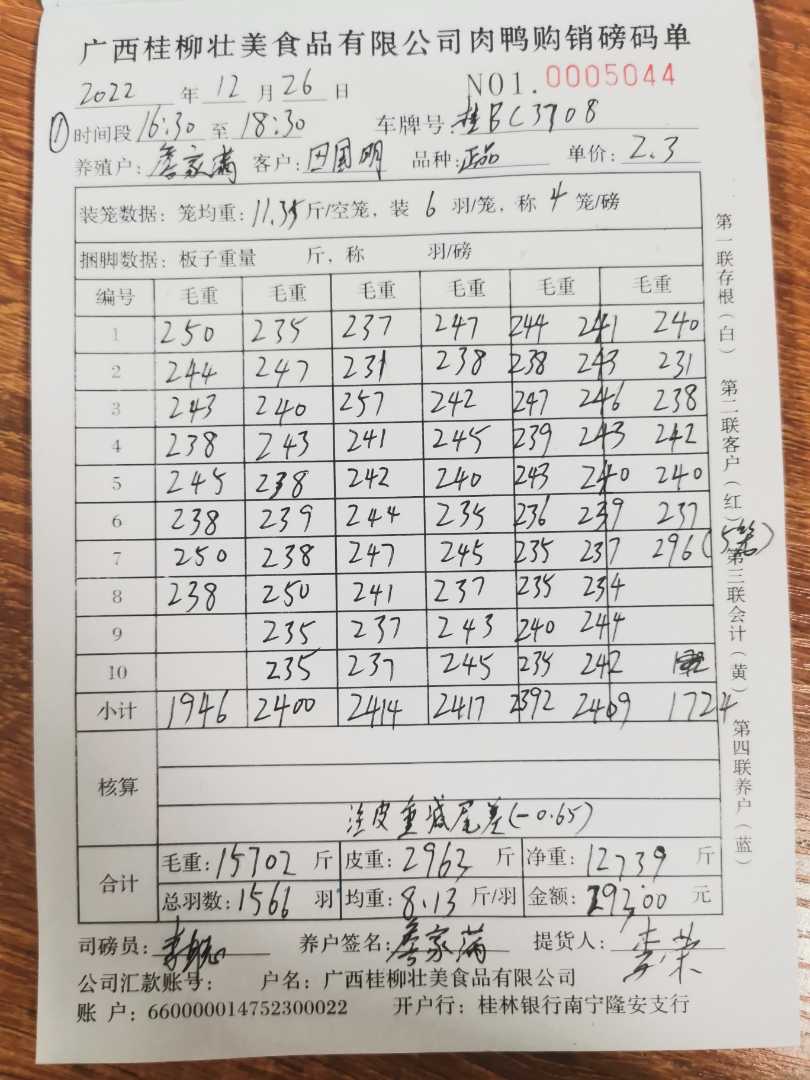 广西桂柳壮美食品有限公司肉鸭购销磅码单
2022 年 12 月 26 日 NO1. 0005044
① 时间段 16:30 至 18:30 车牌号 桂BC3708
养殖户: 詹家满 客户: 田国明 品种: 正品 单价: 2.3
装笼数据: 笼均重: 11.35 斤/空笼, 装 6 羽/笼, 称 4 笼/磅
捆脚数据: 板子重量 斤, 称 羽/磅
编号 毛重 毛重 毛重 毛重 毛重 毛重
1 250 235 237 247 244 241 240
2 244 247 231 238 238 243 231
3 243 240 257 242 247 246 238
4 238 243 241 245 239 243 242
5 245 238 242 240 243 240 240
6 238 239 244 235 236 239 237
7 250 238 247 245 235 237 296(5笼)
8 238 250 241 237 235 234
9 235 237 243 240 244
10 235 237 245 235 242
小计 1946 2400 2414 2417 2392 2409 1724
核算
注皮重减尾差(-0.65)
合计
毛重: 15702 斤 皮重: 2963 斤 净重: 12739 斤
总羽数: 1566 羽 均重: 8.13 斤/羽 金额: 29300 元
司磅员: 养户签名: 詹家满 提货人: 李荣
公司汇款账号: 户名: 广西桂柳壮美食品有限公司
账 户: 660000014752300022 开户行: 桂林银行南宁隆安支行
第一联存根(白) 第二联客户(红) 第三联会计(黄) 第四联养户(蓝)